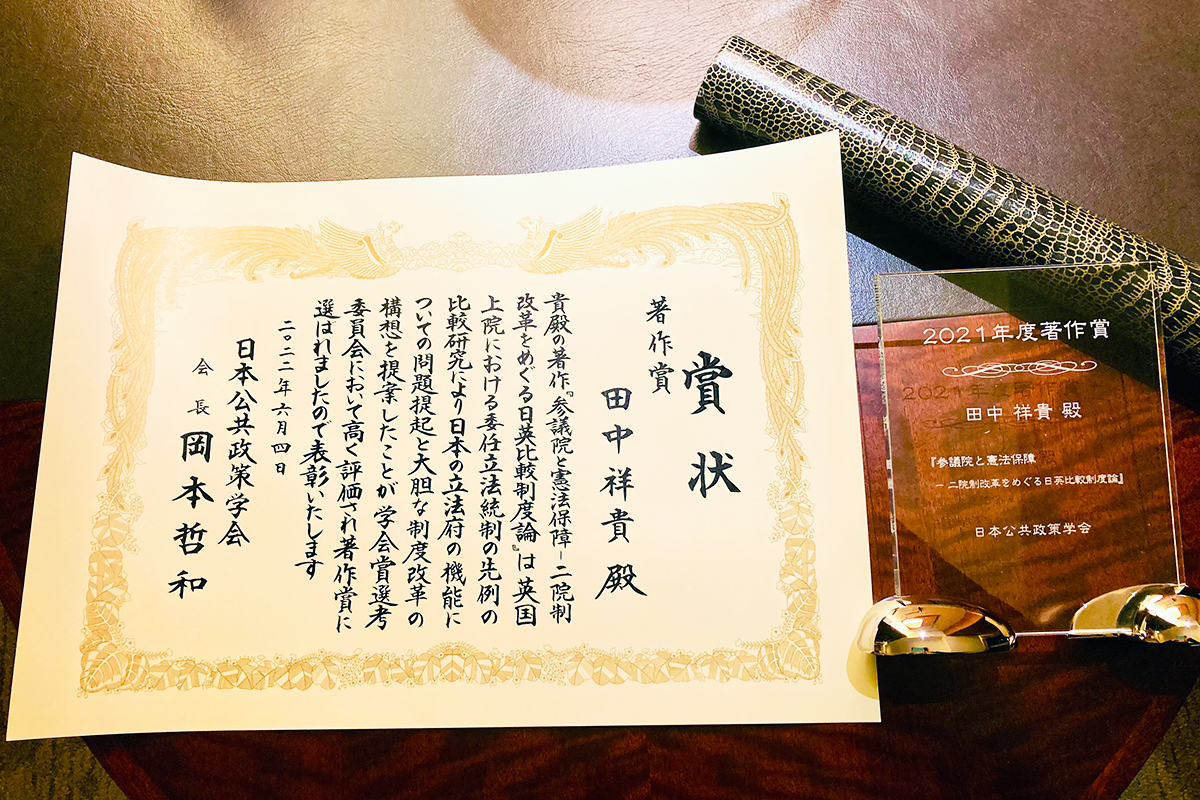 賞状
著作賞
田中祥貴 殿
貴殿の著作『参議院と憲法保障－二院制
改革をめぐる日英比較制度論』は英国
上院における委任立法統制の先例の
比較研究により日本の立法府の機能に
ついての問題提起と大胆な制度改革の
構想を提案したことが学会賞選考
委員会において高く評価され著作賞に
選ばれましたので表彰いたします
二〇二二年六月四日
日本公共政策学会
会長 岡本哲和
2021年度著作賞
田中 祥貴 殿
『参議院と憲法保障
－二院制改革をめぐる日英比較制度論』
日本公共政策学会